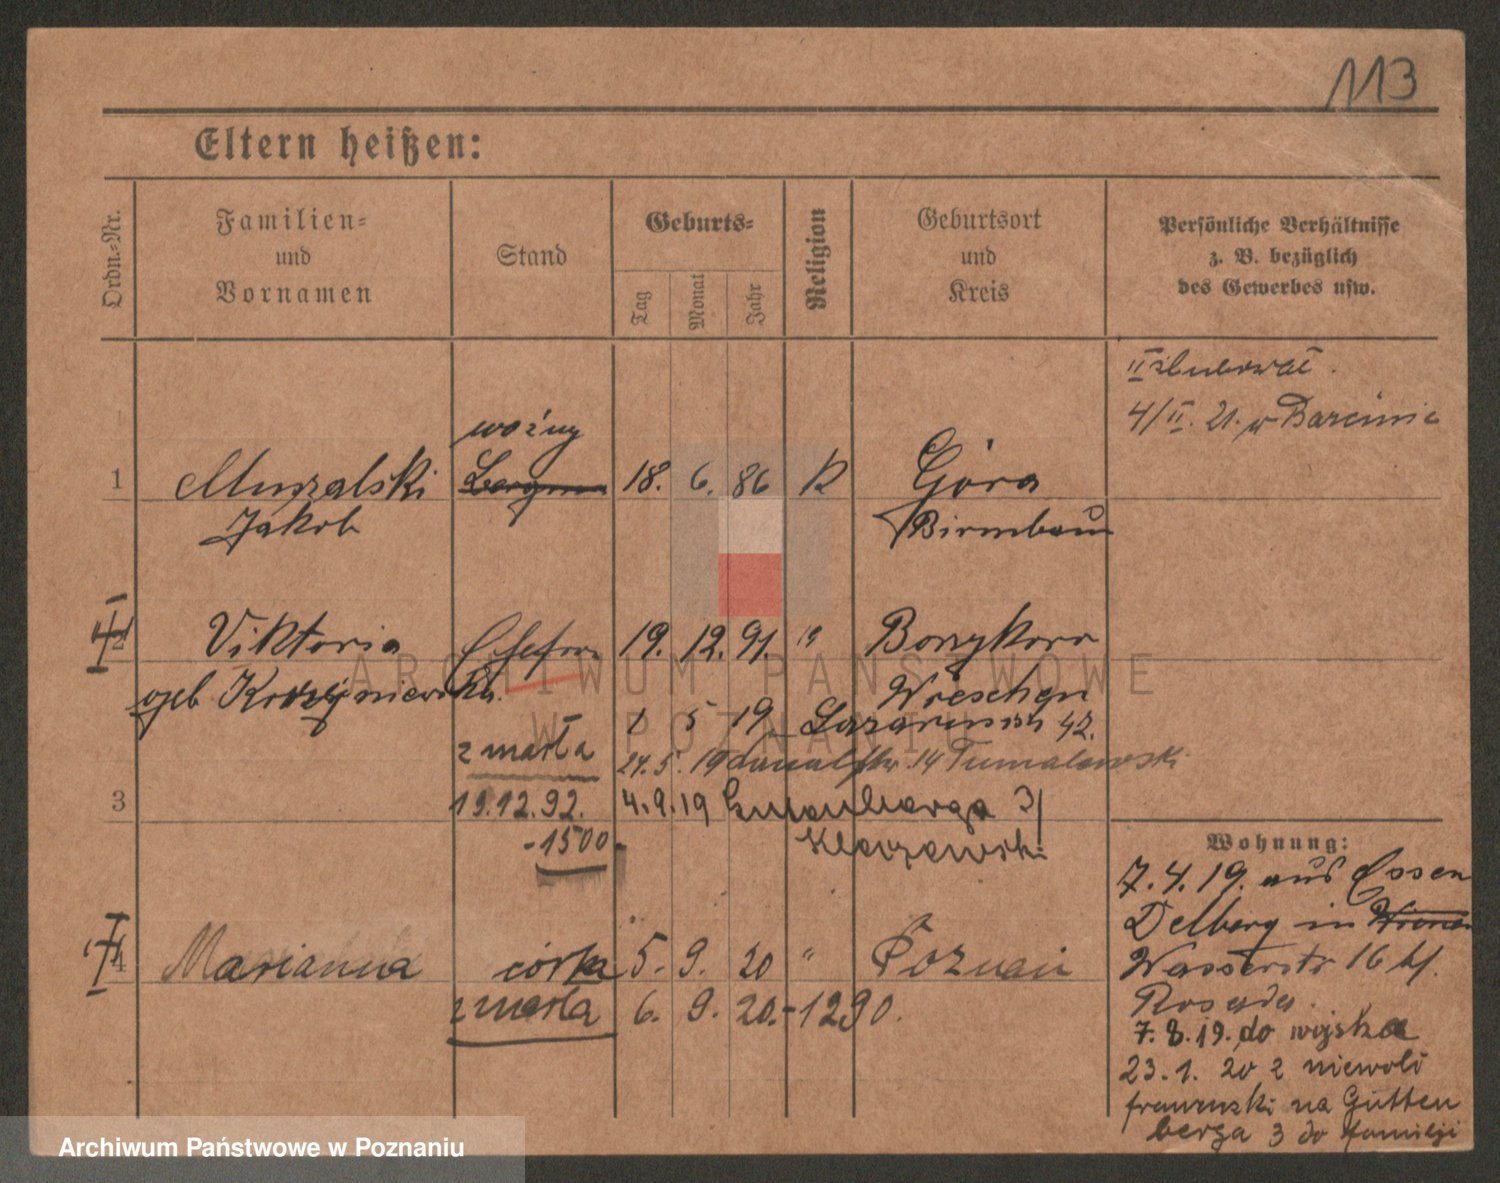 113
Eltern heißen:
Ordn.-Nr.
Familien-
und
Vornamen
Stand
Geburts-
Tag
Monat
Jahr
Religion
Geburtsort
und
Kreis
Persönliche Verhältnisse
z. B. bezüglich
des Gewerbes usw.
II
4/II. 21. w Barcinie
woźny
1 Muszalski Bergm 18. 6. 86 K Góra
Jakob Birnbaum
2 Viktoria Ehefrau 19. 12. 91. "
geb Wreschen
1 5 19 42.
zmarła
24. 5. 19 14
3 19.12.92. 4.9.19 3
-1500-
Wohnung:
7. 4. 19. aus Essen
Delberg in
Wasserstr 16 bf.
4 Marianna córka 5. 9. 20 " Poznań
zmarła 6. 9. 20.-1290.
7. 8. 19. do wojska
23. 1. 20 z niewoli
francuski na Gutten
berga 3 do familji
ARCHIWUM PAŃSTWOWE
W POZNANIU
Archiwum Państwowe w Poznaniu